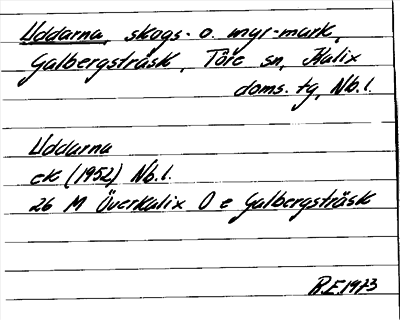 Uddarna, skogs- o. myr-mark,
Galbergsträsk, Töre sn, Kalix
doms. tg, Nb.l.
Uddarna
ek (1952) Nb.l.
26 M Överkalix O e Galbergsträsk
R.E. 1973